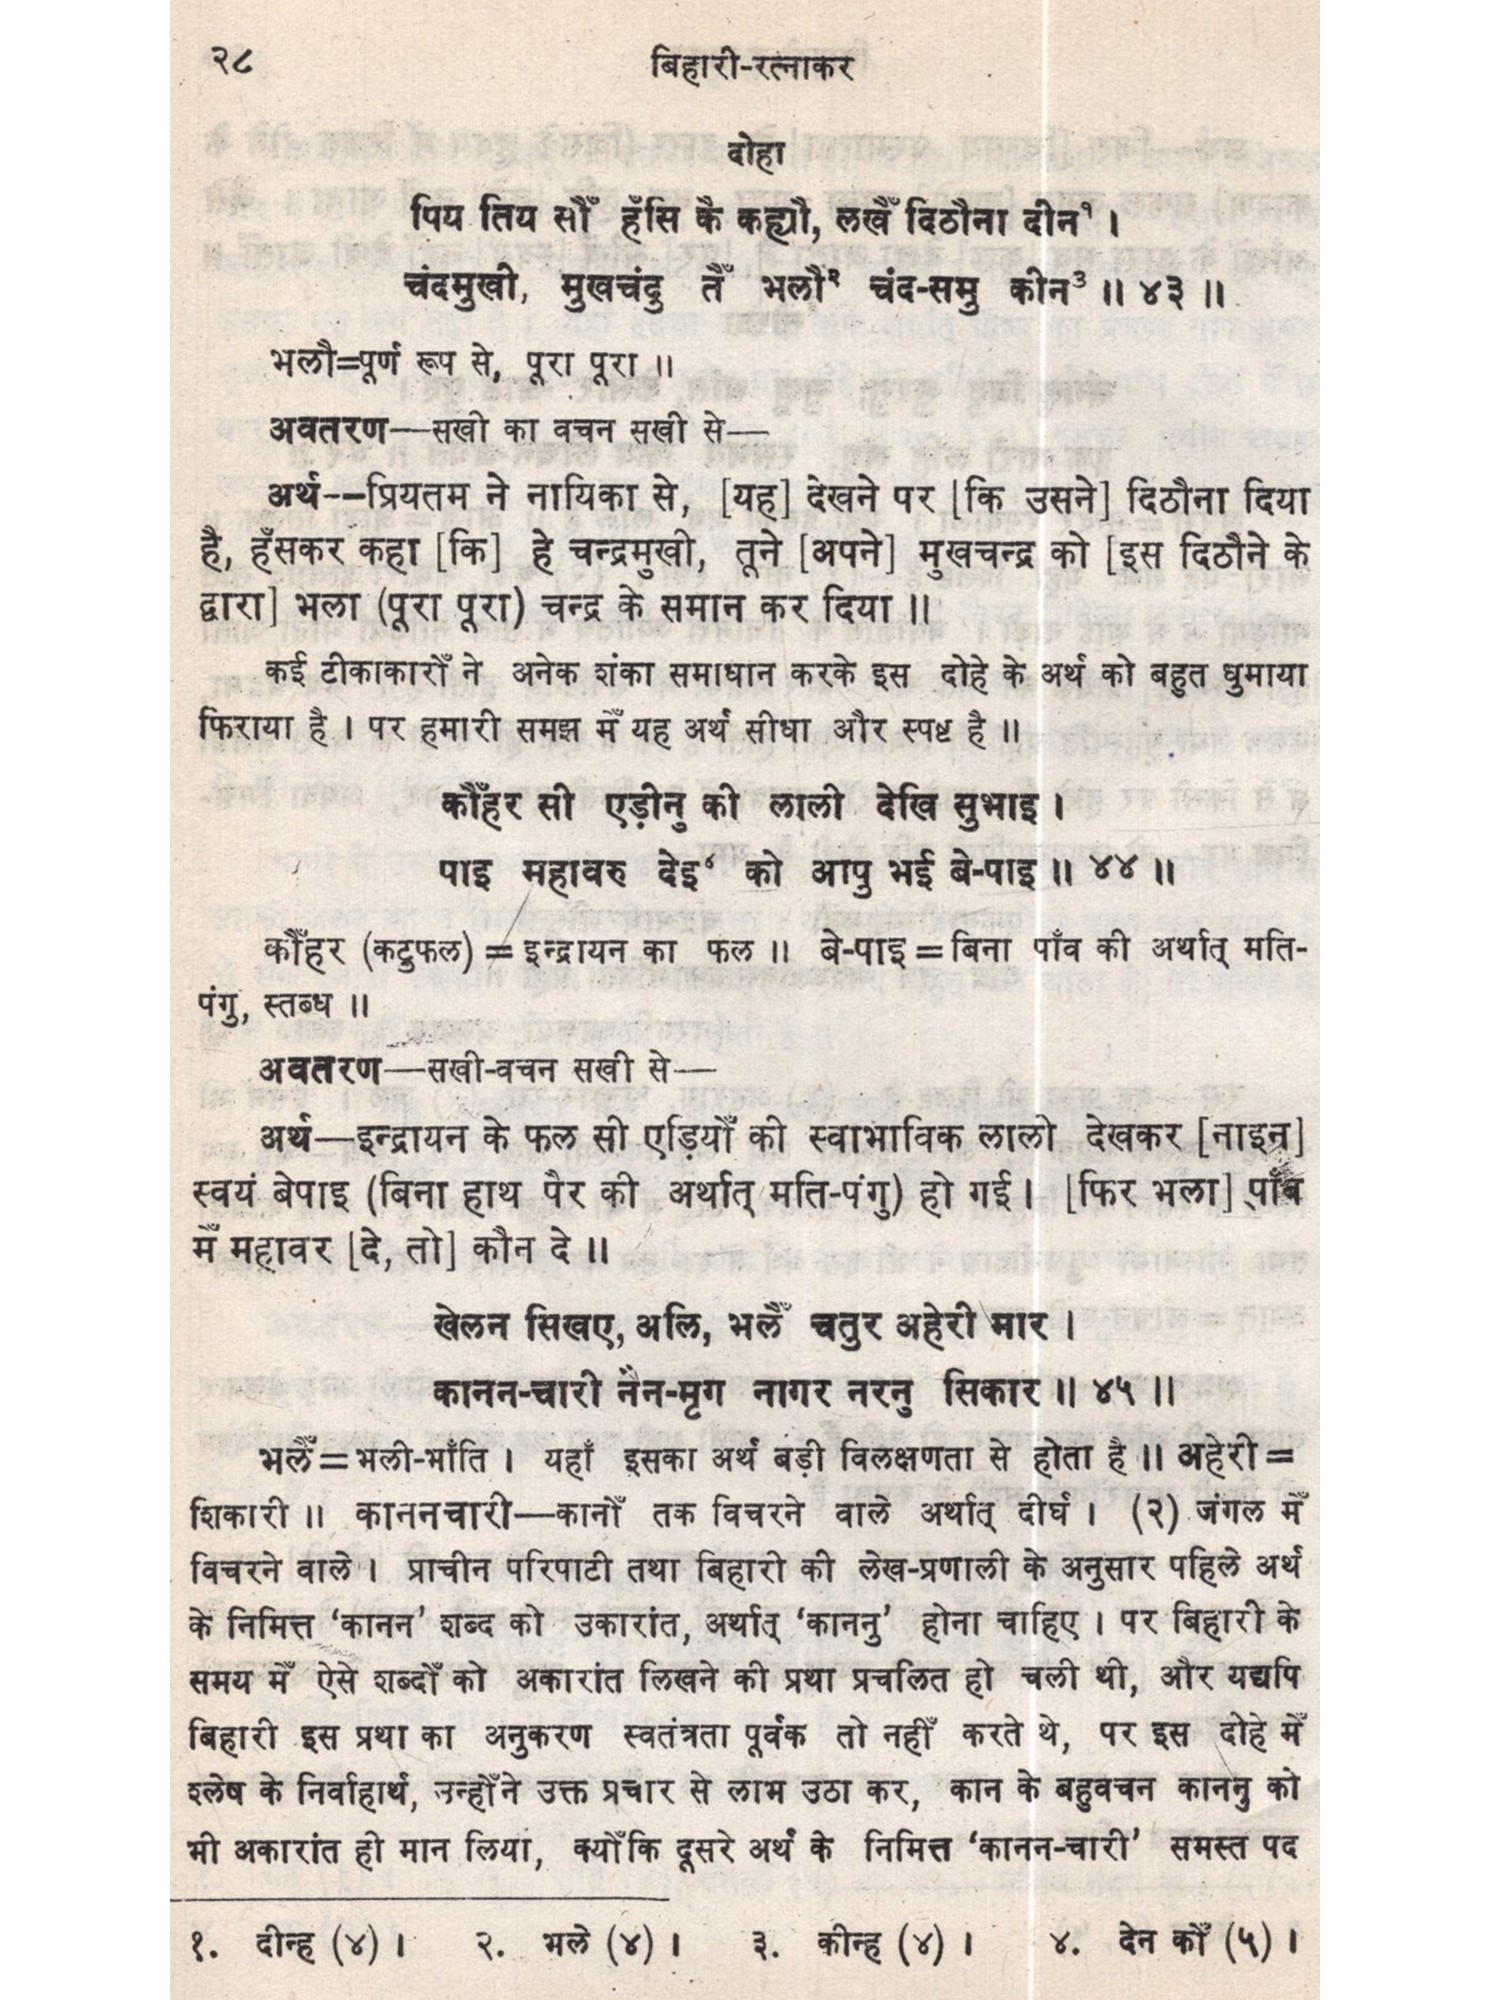 २८
बिहारी-रत्नाकर
दोहा
पिय तिय सौँ हँसि कै कह्यौ, लखैँ दिठौना दीन¹ ।
चंदमुखी, मुखचंदु तैँ भलौ² चंद-समु कीन³ ॥ ४३ ॥
भलौ=पूर्ण रूप से, पूरा पूरा ॥
अवतरण—सखी का वचन सखी से—
अर्थ--प्रियतम ने नायिका से, [यह] देखने पर [कि उसने] दिठौना दिया
है, हँसकर कहा [कि] हे चन्द्रमुखी, तूने [अपने] मुखचन्द्र को [इस दिठौने के
द्वारा] भला (पूरा पूरा) चन्द्र के समान कर दिया ॥
कई टीकाकारोँ ने अनेक शंका समाधान करके इस दोहे के अर्थ को बहुत घुमाया
फिराया है । पर हमारी समझ मेँ यह अर्थ सीधा और स्पष्ट है ॥
कौँहर सी एड़ीनु की लाली देखि सुभाइ ।
पाइ महावरु देइ⁴ को आपु भई बे-पाइ ॥ ४४ ॥
कौँहर (कटुफल) = इन्द्रायन का फल ॥ बे-पाइ = बिना पाँव की अर्थात् मति-
पंगु, स्तब्ध ॥
अवतरण—सखी-वचन सखी से—
अर्थ—इन्द्रायन के फल सी एड़ियोँ की स्वाभाविक लाली देखकर [नाइन]
स्वयं बेपाइ (बिना हाथ पैर की अर्थात् मति-पंगु) हो गई । [फिर भला] पाँव
मेँ महावर [दे, तो] कौन दे ॥
खेलन सिखए, अलि, भलैँ चतुर अहेरी मार ।
कानन-चारी नैन-मृग नागर नरनु सिकार ॥ ४५ ॥
भलैँ = भली-भाँति । यहाँ इसका अर्थ बड़ी विलक्षणता से होता है ॥ अहेरी =
शिकारी ॥ काननचारी—कानोँ तक विचरने वाले अर्थात् दीर्घ । (२) जंगल मेँ
विचरने वाले । प्राचीन परिपाटी तथा बिहारी की लेख-प्रणाली के अनुसार पहिले अर्थ
के निमित्त ‘कानन’ शब्द को उकारांत, अर्थात् ‘काननु’ होना चाहिए । पर बिहारी के
समय मेँ ऐसे शब्दोँ को अकारांत लिखने की प्रथा प्रचलित हो चली थी, और यद्यपि
बिहारी इस प्रथा का अनुकरण स्वतंत्रता पूर्वक तो नहीँ करते थे, पर इस दोहे मेँ
श्लेष के निर्वाहार्थ, उन्होँने उक्त प्रचार से लाभ उठा कर, कान के बहुवचन काननु को
भी अकारांत ही मान लिया, क्योँकि दूसरे अर्थ के निमित्त ‘कानन-चारी’ समस्त पद
१. दीन्ह (४) । २. भले (४) । ३. कीन्ह (४) । ४. देन कोँ (५) ।